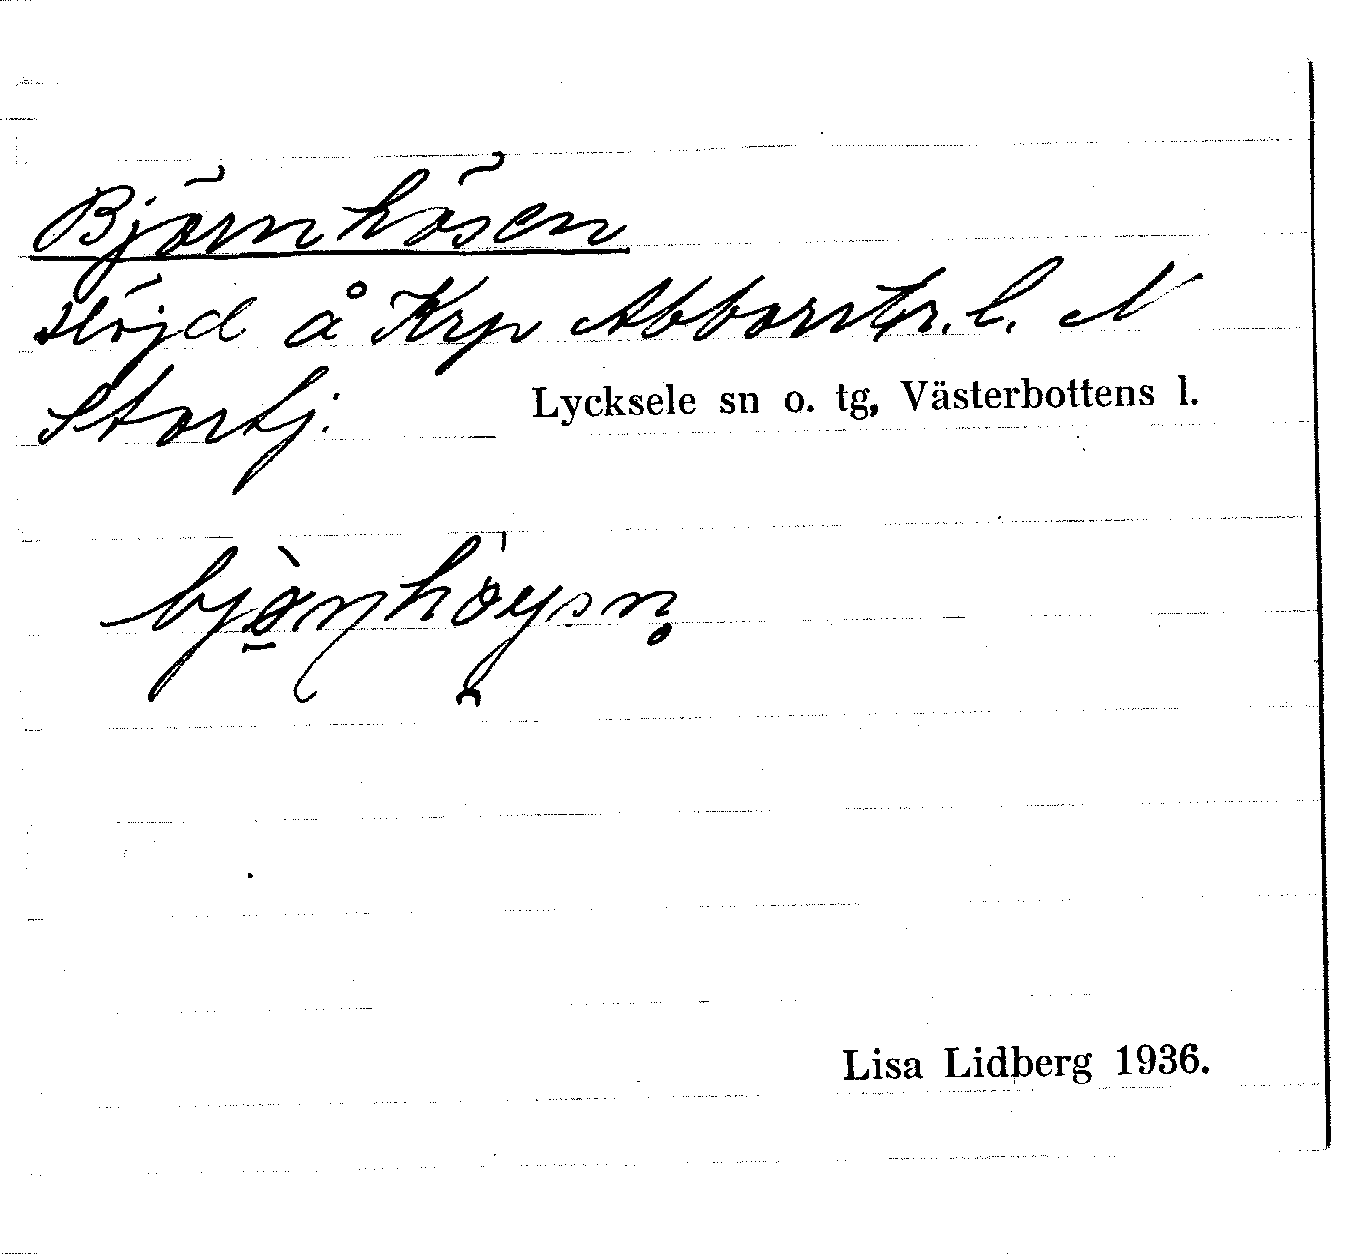 Björnhösen
Höjd å Krp Abborrtr. l. N
Stortj.
Lycksele sn o. tg, Västerbottens l.
Lisa Lidberg 1936.